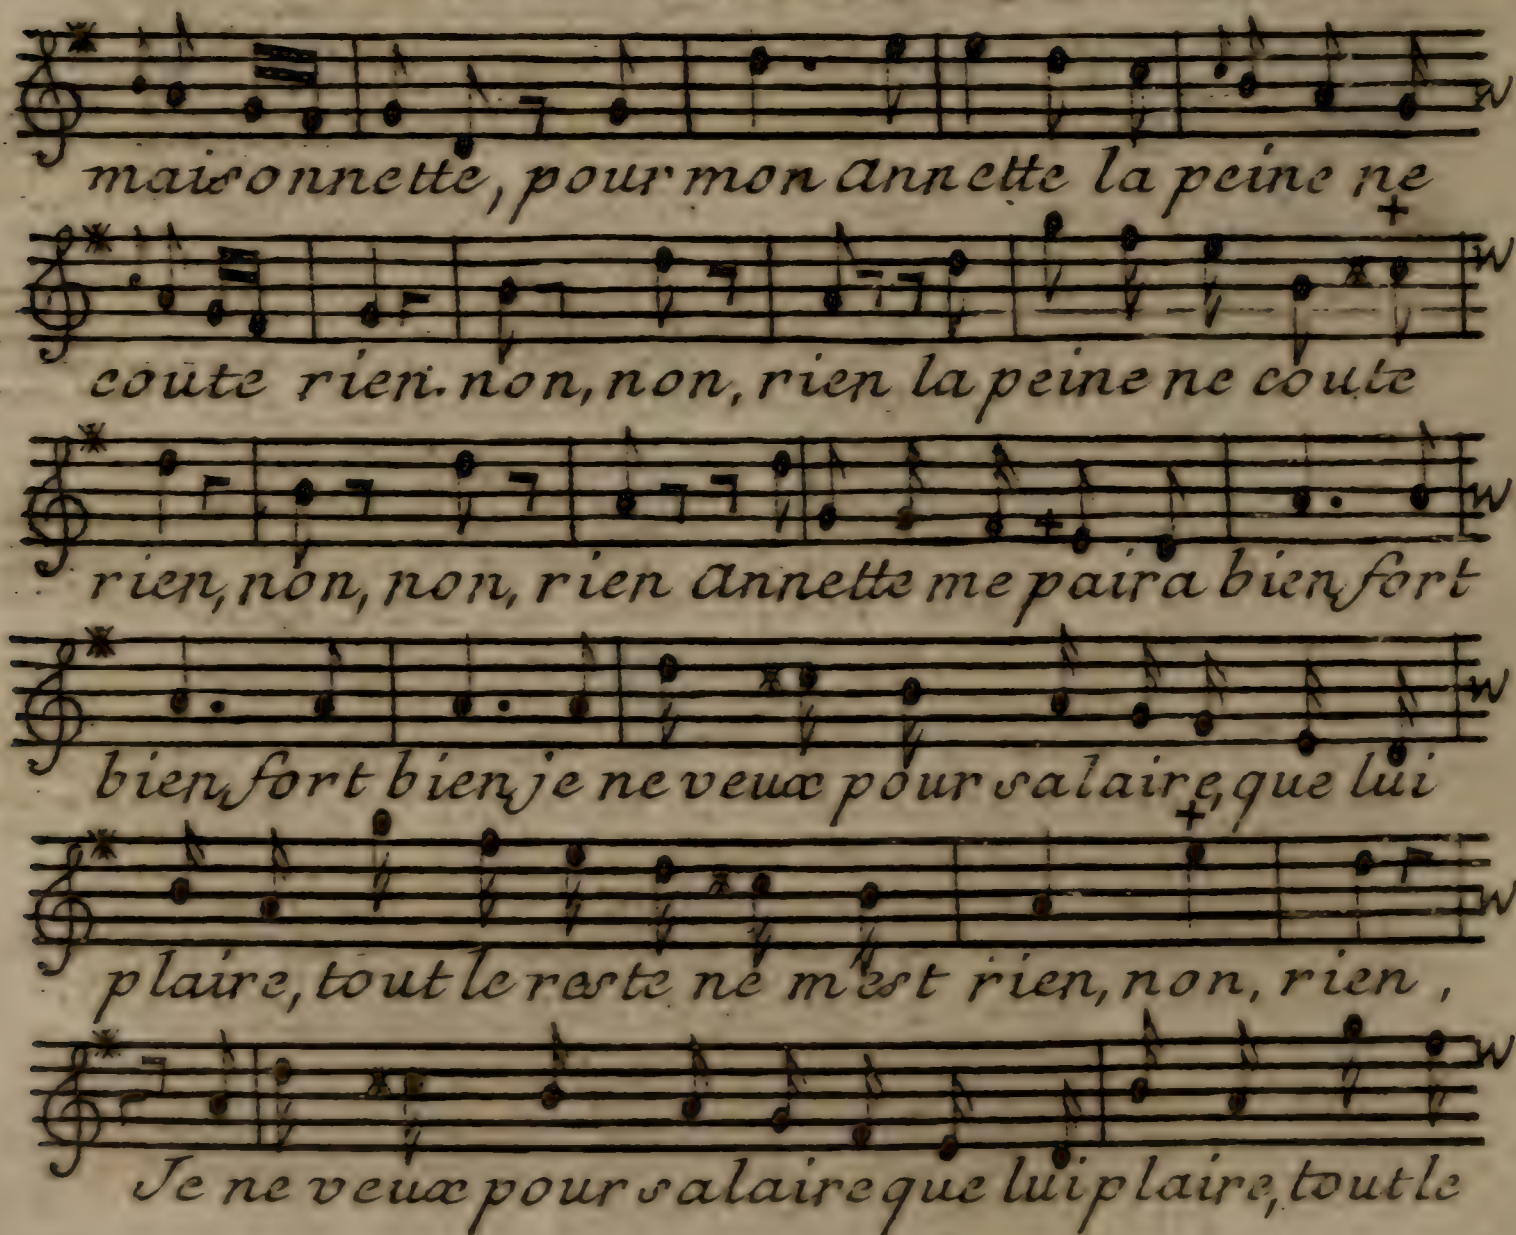 maisonnette, pour mon Annette la peine ne
coute rien. non, non, rien la peine ne coute
rien, non, non, rien Annette me paira bien, fort
bien, fort bien, je ne veux pour salaire, que lui
plaire, tout le reste ne m'est rien, non, rien,
Je ne veux pour salaire que lui plaire, tout le